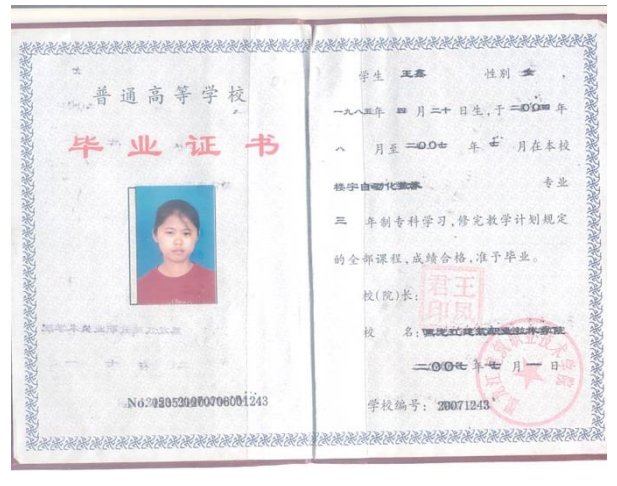 普通高等学校
毕业证书
No.
学生 王鑫 性别 女 ,
一九八五年 四 月 二十 日生,于 二〇〇四 年
八 月至 二〇〇七 年 七 月在本校
楼宇自动化 专业
三 年制专科学习,修完教学计划规定
的全部课程,成绩合格,准予毕业。
校(院)长:
王凤君印
校 名: 黑龙江建筑职业技术学院
二〇〇七 年 七 月 一 日
学校编号: 20071243